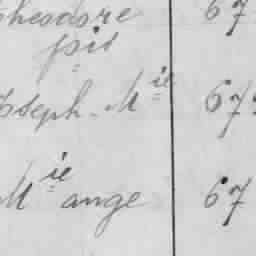 heodore 67
fils
Joseph. Mie 67
Mie ange 67